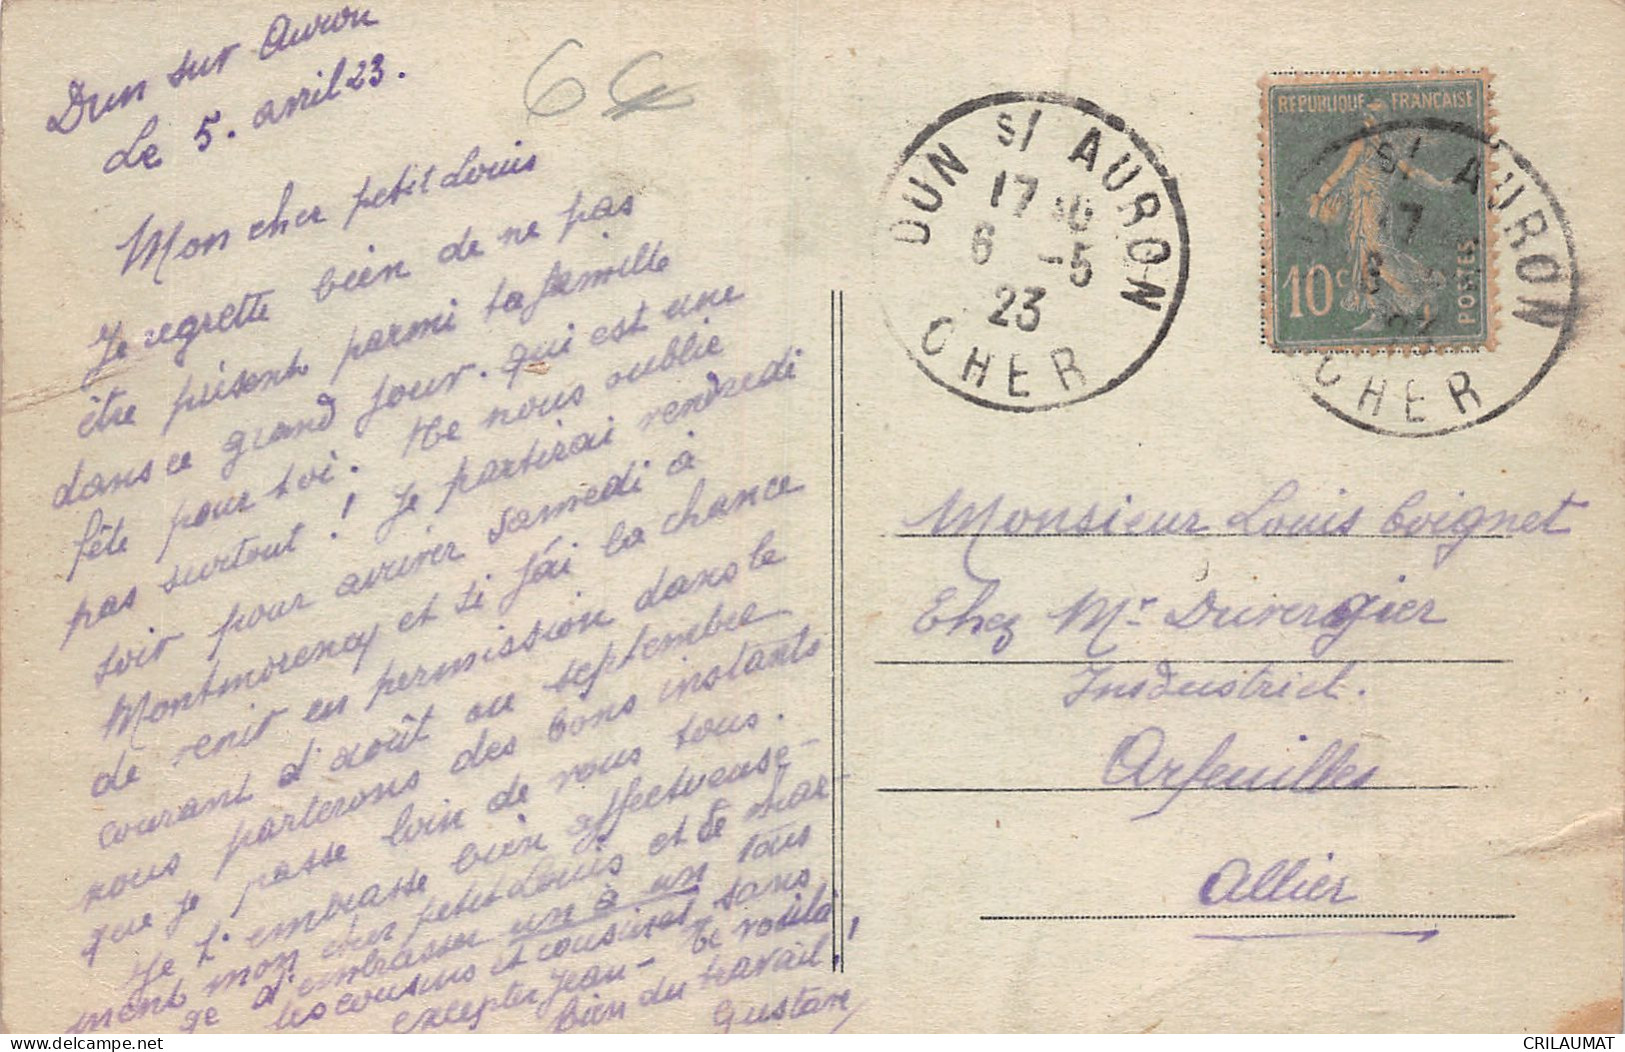 Dun sur Auron
Le 5. avril 23.
6
Mon cher petit Louis
Je regrette bien de ne pas
être présent parmi ta famille
dans ce grand jour. qui est une
fête pour toi. Ne nous oublie
pas surtout! Je partirai vendredi
soir pour arriver samedi à
Montmorency et si j'ai la chance
de venir en permission dans le
courant d'août ou septembre
nous parlerons des bons instants
que je passe loin de vous tous.
Je t'embrasse bien affectueuse-
ment mon cher petit Louis et te char-
ge d'embrasser un à un tous
tes cousins et cousines sans
excepter Jean - Te voilà
bien du travail!
Gustave
DUN S/ AURON
17 30
6 -5
23
CHER
REPUBLIQUE FRANÇAISE
10c
POSTES
S/ AURON
17
CHER
Monsieur Louis Coignet
Chez Mr Duvergier
Industriel.
Arfeuilles
Allier
delcampe.net
CRILAUMAT